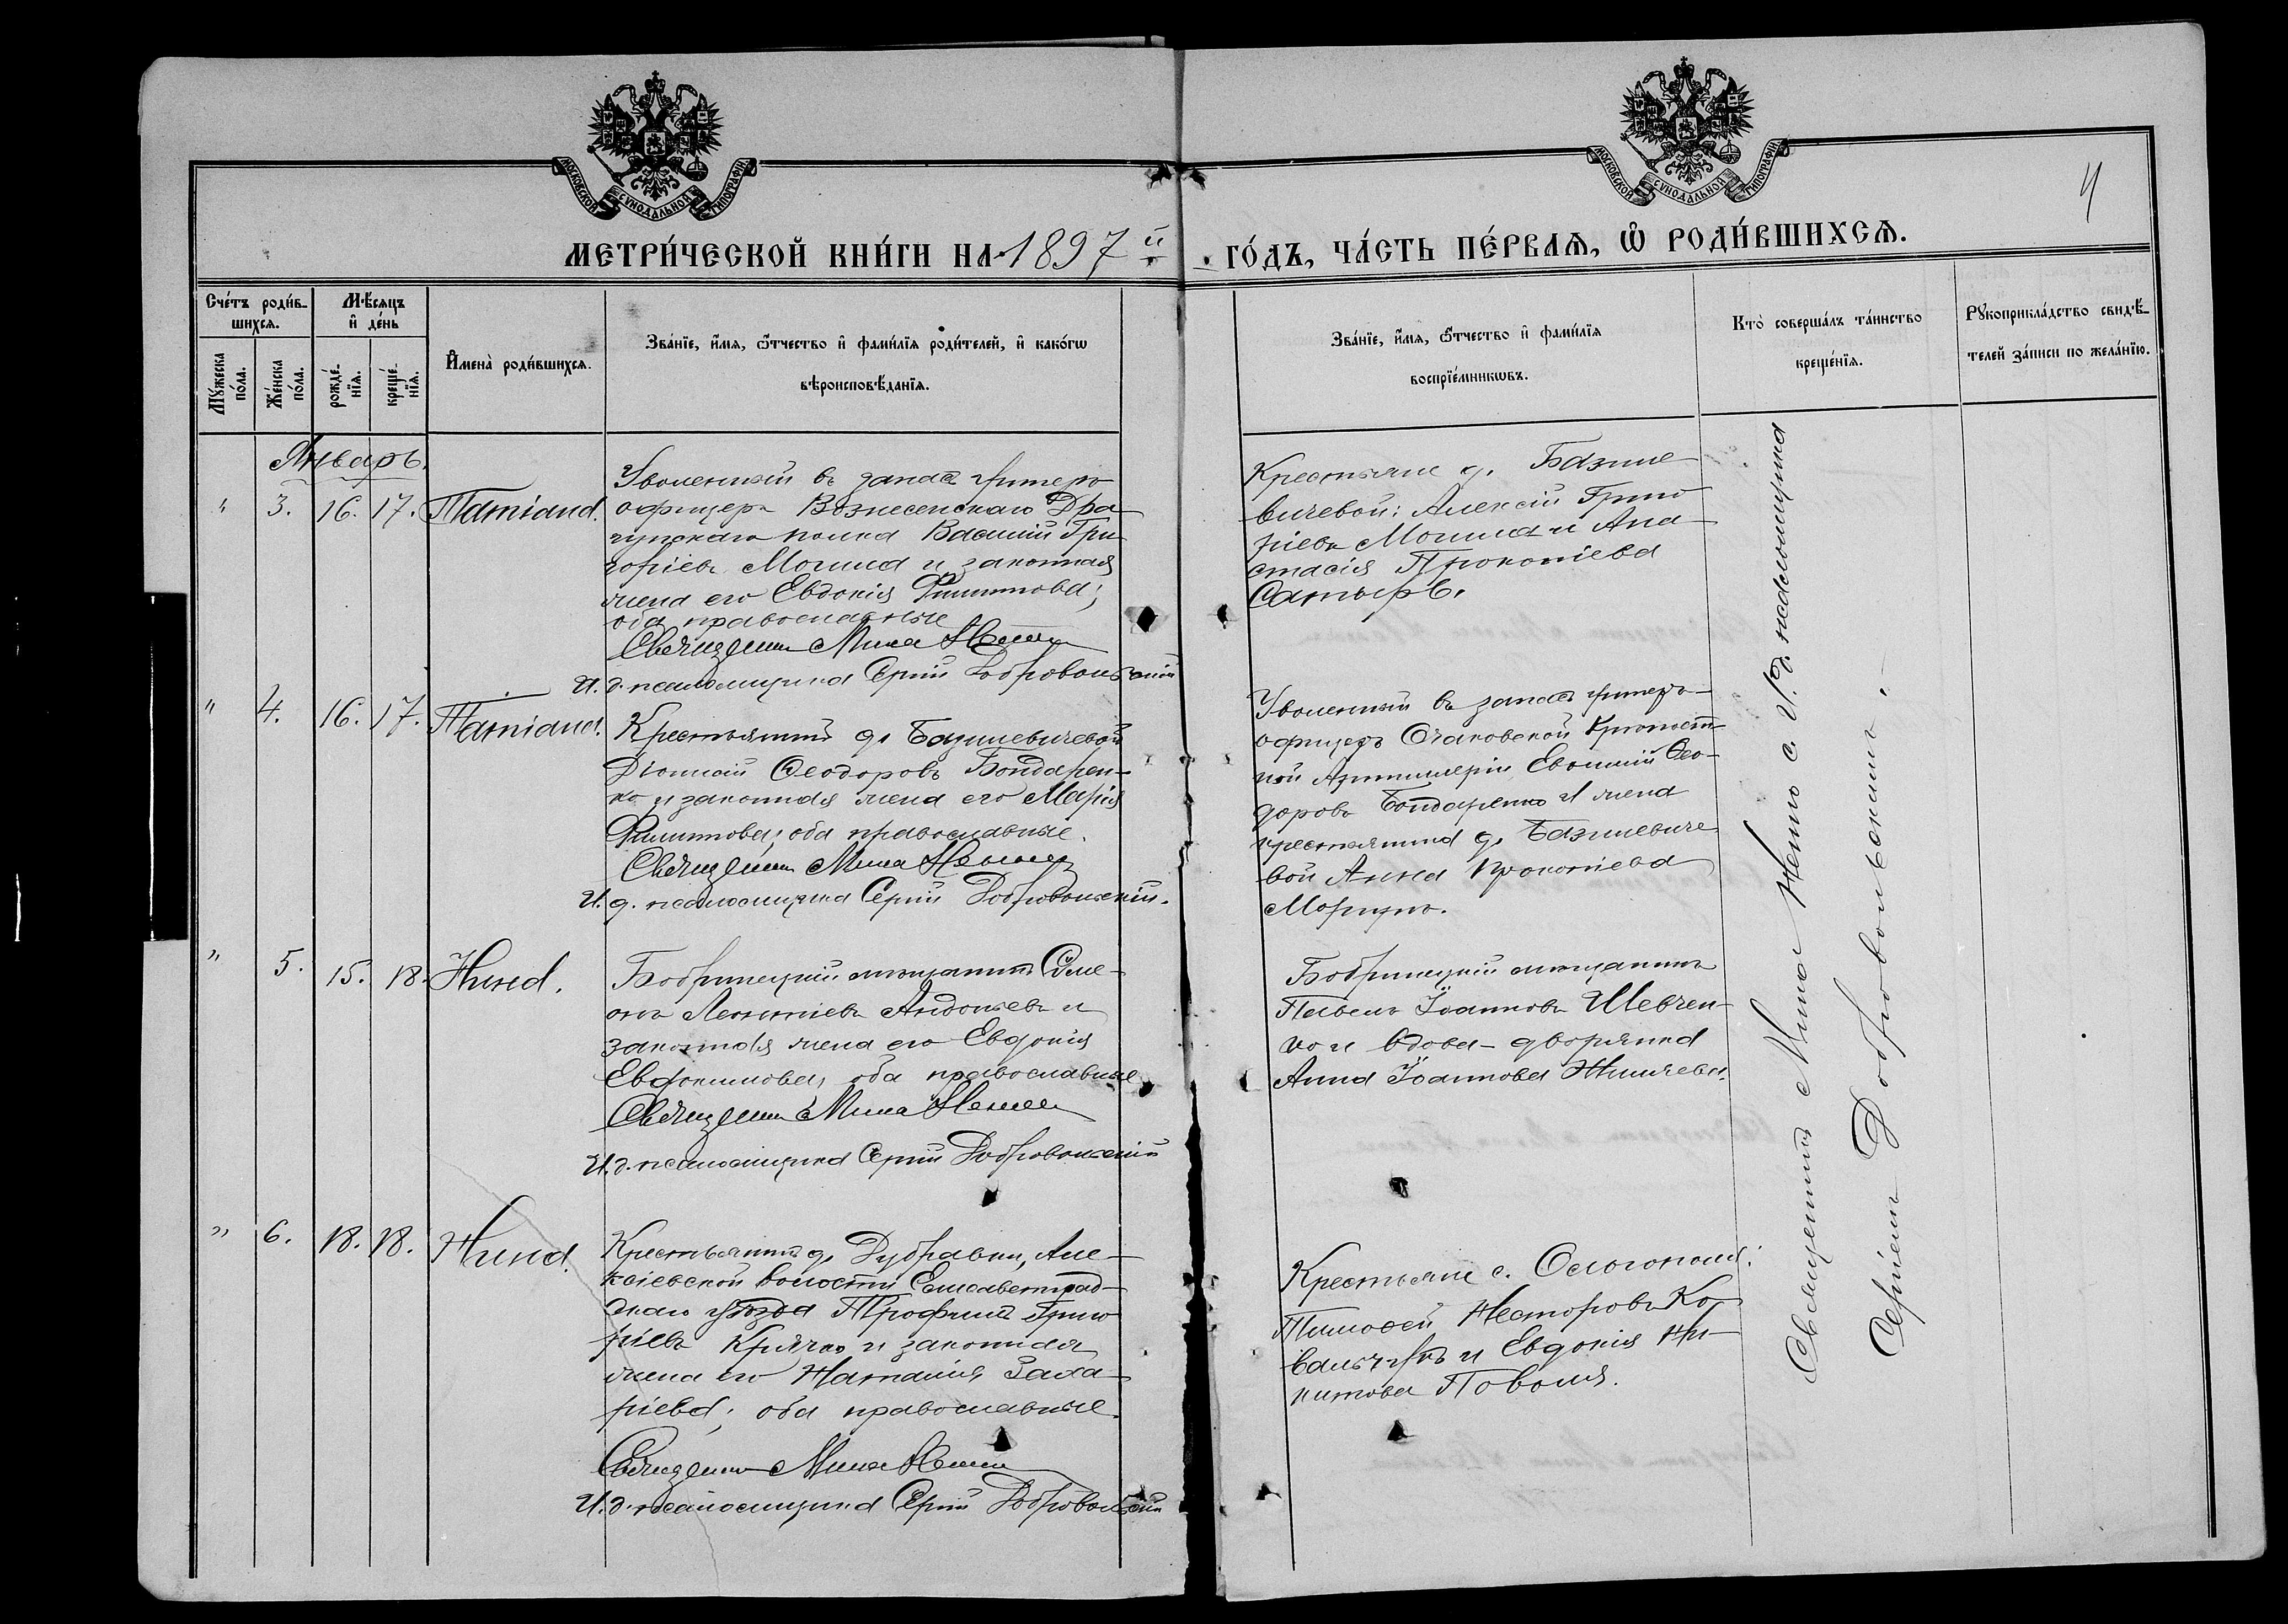 МОСКОВСКОЙ СѴНОДАЛЬНОЙ ТИПОГРАФІИ
МОСКОВСКОЙ СѴНОДАЛЬНОЙ ТИПОГРАФІИ
4
МЕТРИ́ЧЕСКОЙ КНИ́ГИ НА 1897 й
ГО́ДЪ, ЧА́СТЬ ПЕ́РВАѦ, Ѡ РОДИ́ВШИХСѦ.
Сче́тъ роди́в-
шихсѧ.
Мѣ́сѧцъ
и҆ де́нь
Мꙋ́жеска
по́ла.
Же́нска
по́ла.
рожде́-
нїѧ.
креще́-
нїѧ.
И҆мена̀ роди́вшихсѧ.
Зва́нїе, и҆́мѧ, ѻ҆́тчество и҆ фами́лїѧ роди́телей, и҆ како́гѡ
вѣроисповѣ́данїѧ.
Зва́нїе, и҆́мѧ, ѻ҆́тчество и҆ фами́лїѧ
воспрїе́мникѡвъ.
Кто̀ соверша́лъ та́инство
креще́нїѧ.
Рꙋкоприкла́дство свидѣ́-
телей за́писи по жела́нїю.
Январь.
" 3. 16. 17. Татіана.
Уволенный въ запасъ унтеръ
офицеръ Вознесенскаго Дра-
гунскаго полка Василій Гри-
горіевъ Могила и законная
жена его Евдокія Филиппова;
оба православные
Священникъ Мина
И. д. псаломщика Сергій Добровольскій
Крестьяне д. Базиле-
вичевой: Алексій Григо-
ріевъ Могила и Ана-
стасія Прокопіева
Сатырь.
" 4. 16. 17. Татіана.
Крестьянинъ д. Базилевичевой
Діонисій Ѳеодоровъ Бондарен-
ко и законная жена его Марія
Филиппова; оба православные.
Священникъ Мина
И. д. псаломщика Сергій Добровольскій.
Уволенный въ запасъ унтеръ-
офицеръ Очаковской Крѣпост-
ной Артиллеріи Евѳимій Ѳео-
доровъ Бондаренко и жена
крестьянина д. Базилевиче-
вой Анна Прокопіева
" 5. 15. 18. Нина.
Бобринецкій мѣщанинъ Симе-
онъ Леонтіевъ и
законная жена его Евдокія
Евдокимова, оба православные
Священникъ Мина
И. д. псаломщика Сергій Добровольскій
Бобринецкій мѣщанинъ
Павелъ Іоанновъ Шевчен-
ко и вдова-дворянка
Анна Іоаннова
" 6. 18. 18. Нина.
Крестьянинъ д. Дубравки, Але-
ксіевской волости Елисаветград-
скаго уѣзда Трофимъ Григо-
ріевъ Крячко и законная
жена его Наталія Заха-
ріева; оба православные.
Священникъ Мина
И. д. псаломщика Сергій Добровольскій
Крестьяне с.
Тимоѳей Несторовъ Ко-
вальчукъ и Евдокія Ни-
китова Поволя.
Священникъ Мина с И. д. псаломщика
Сергіемъ Добровольскимъ.